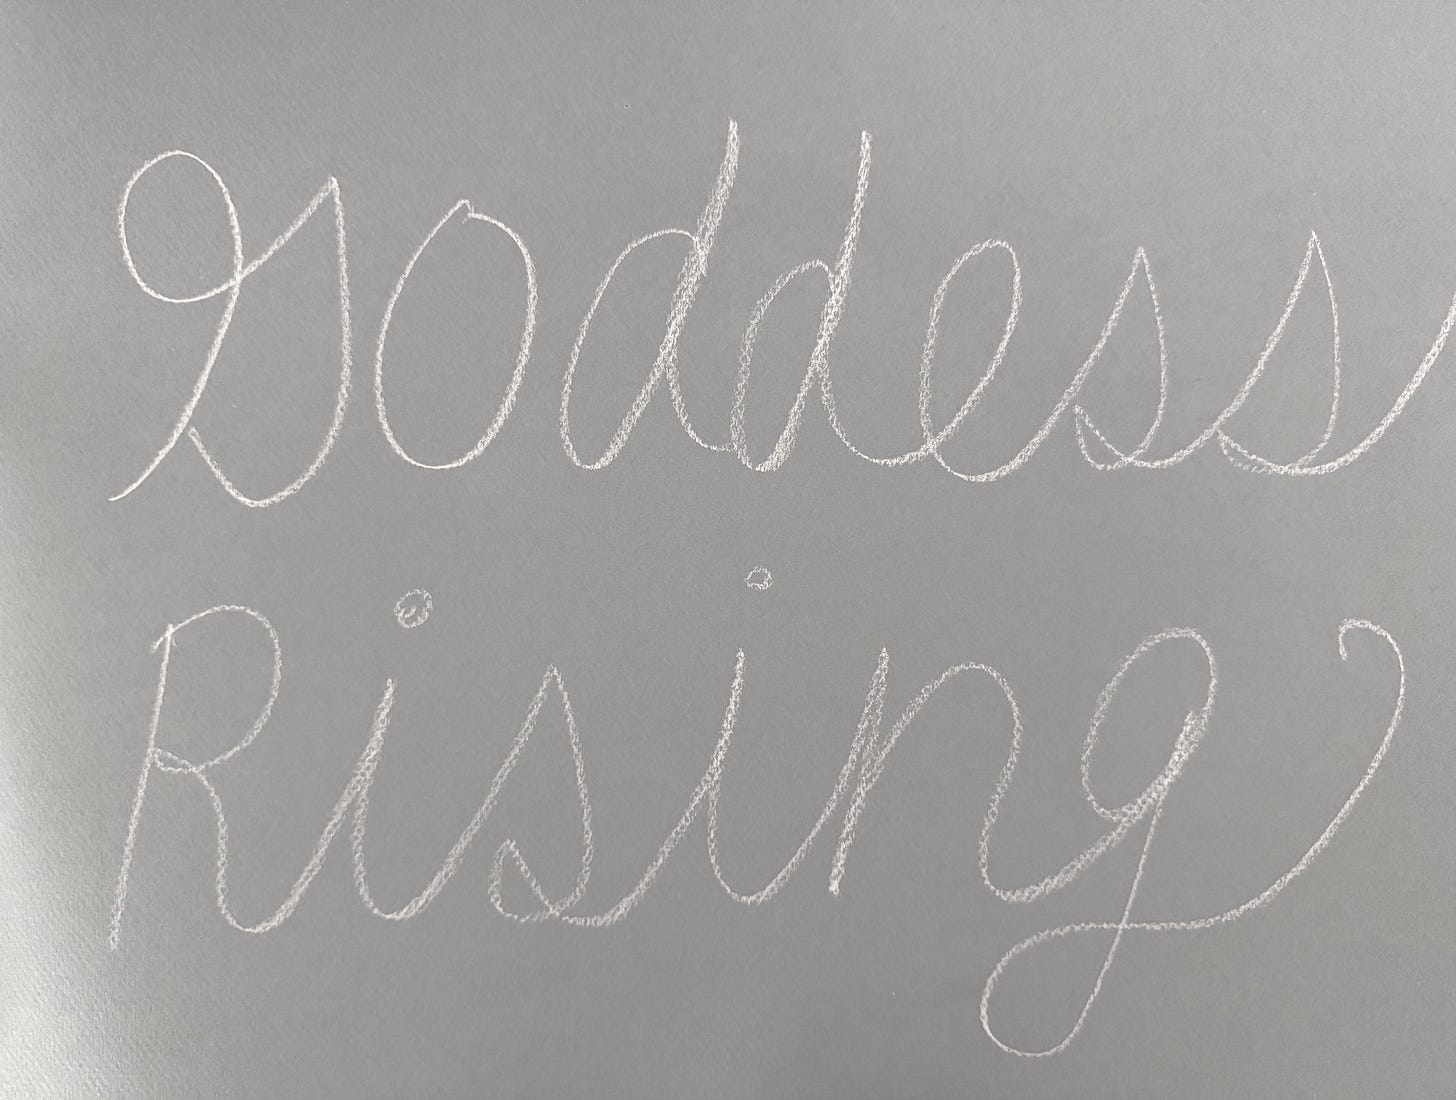 Goddess
Rising